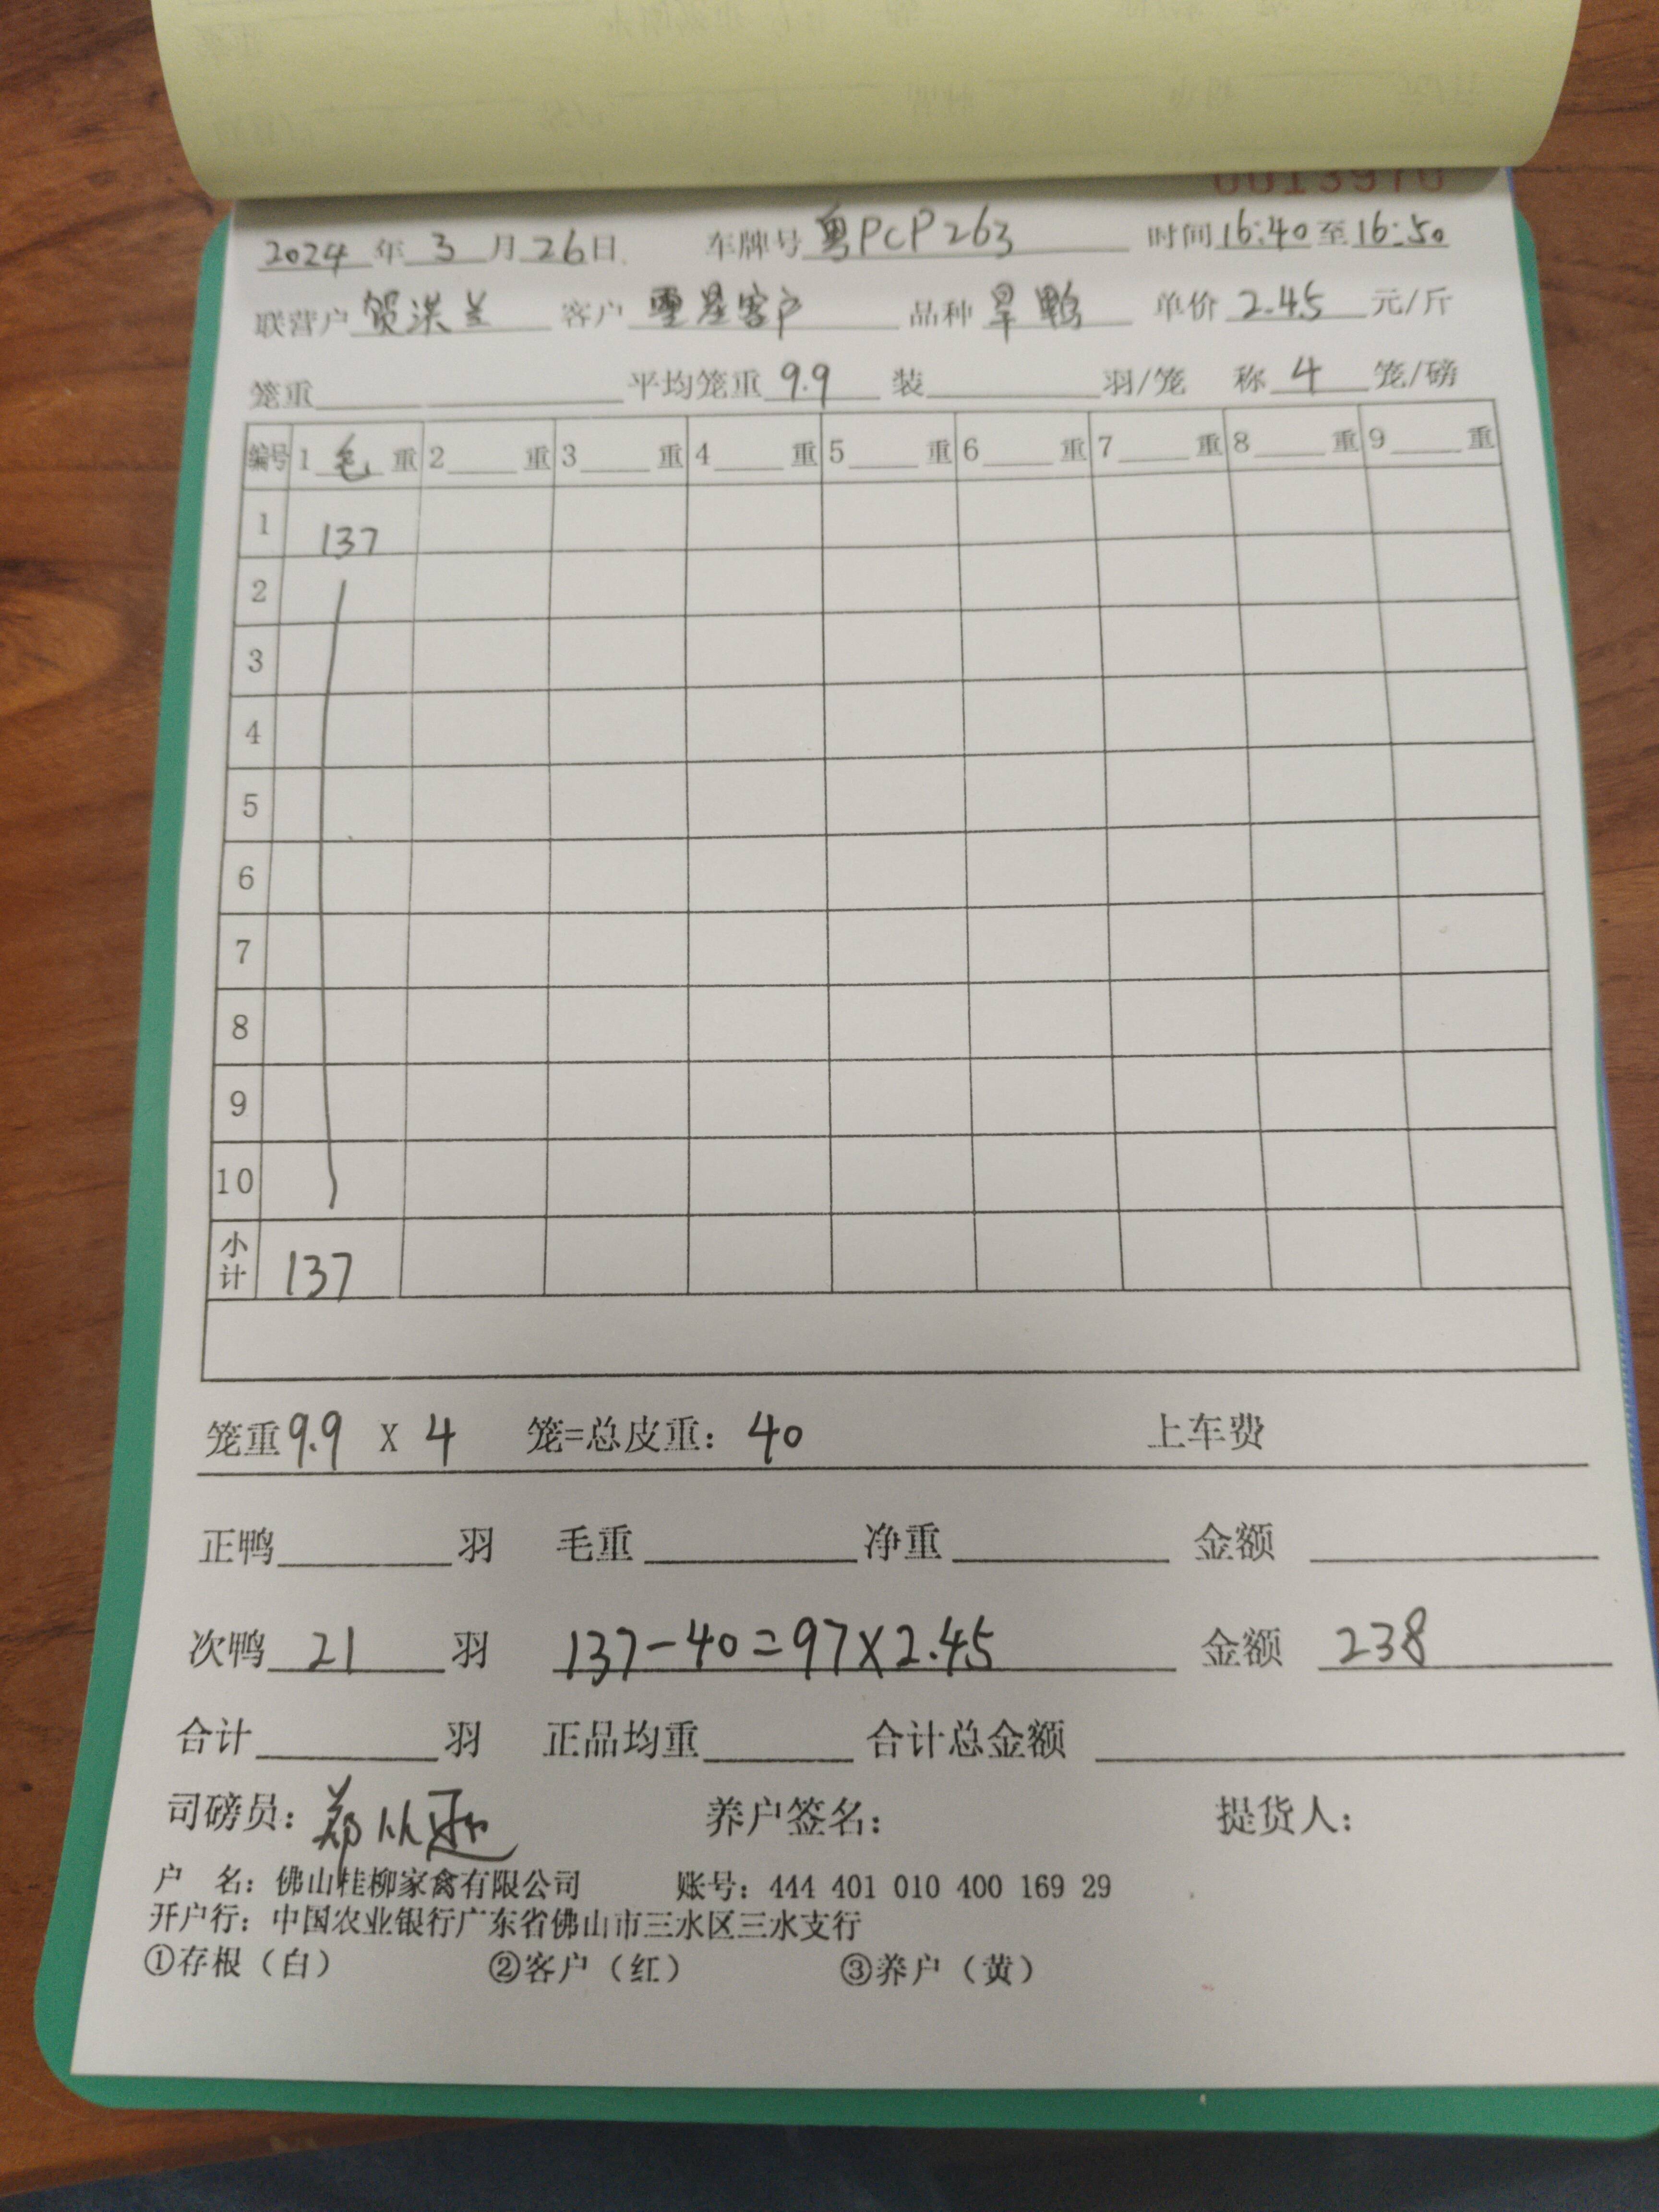 2024 年 3 月 26 日 车牌号 粤PCP263 时间 16:40 至 16:50
联营户 贺洪兰 客户 零星客户 品种 旱鸭 单价 2.45 元/斤
笼重 平均笼重 9.9 装 羽/笼 称 4 笼/磅
编号 1 毛 重 2 重 3 重 4 重 5 重 6 重 7 重 8 重 9 重
1 137
2
3
4
5
6
7
8
9
10
小计 137
笼重 9.9 X 4 笼=总皮重: 40 上车费
正鸭 羽 毛重 净重 金额
次鸭 21 羽 137-40=97×2.45 金额 238
合计 羽 正品均重 合计总金额
司磅员: 郑 养户签名: 提货人:
户 名: 佛山桂柳家禽有限公司 账号: 444 401 010 400 169 29
开户行: 中国农业银行广东省佛山市三水区三水支行
①存根（白） ②客户（红） ③养户（黄）